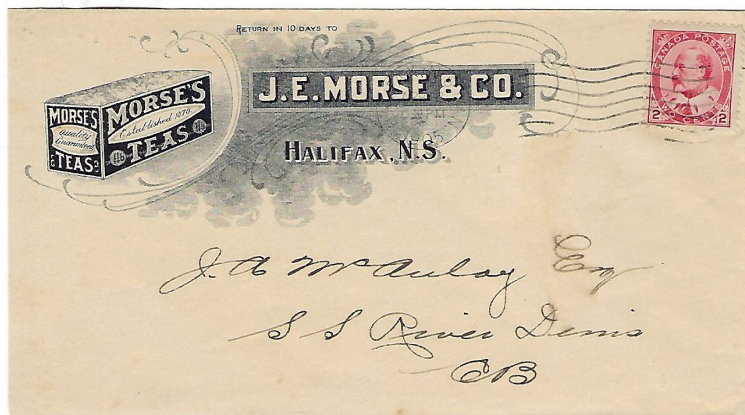 RETURN IN 10 DAYS TO
J.E. MORSE & CO.
HALIFAX, N.S.
MORSE'S
Quality
Guaranteed
TEAS
MORSE'S
Established 1870
1lb TEAS 1lb
CANADA POSTAGE
2 TWO CENTS 2
J. A McAulay Esq
S S River Denis
CB